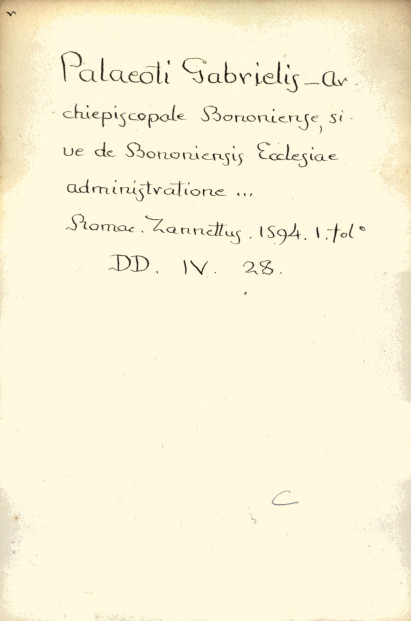 Palaeoti Gabrielis - Ar
chiepiscopale Bononiense, si-
ve de Bononiensis Ecclesiae
administratione ...
Romae. Zannettus. 1594. 1. fol°
DD. IV. 28.
C